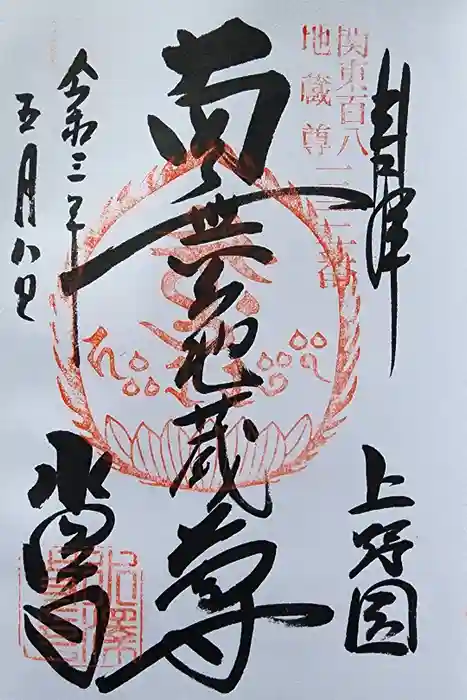 奉拝
上野国
関東百八
地蔵尊
南無地蔵尊
令和三年
五月八日
水澤寺